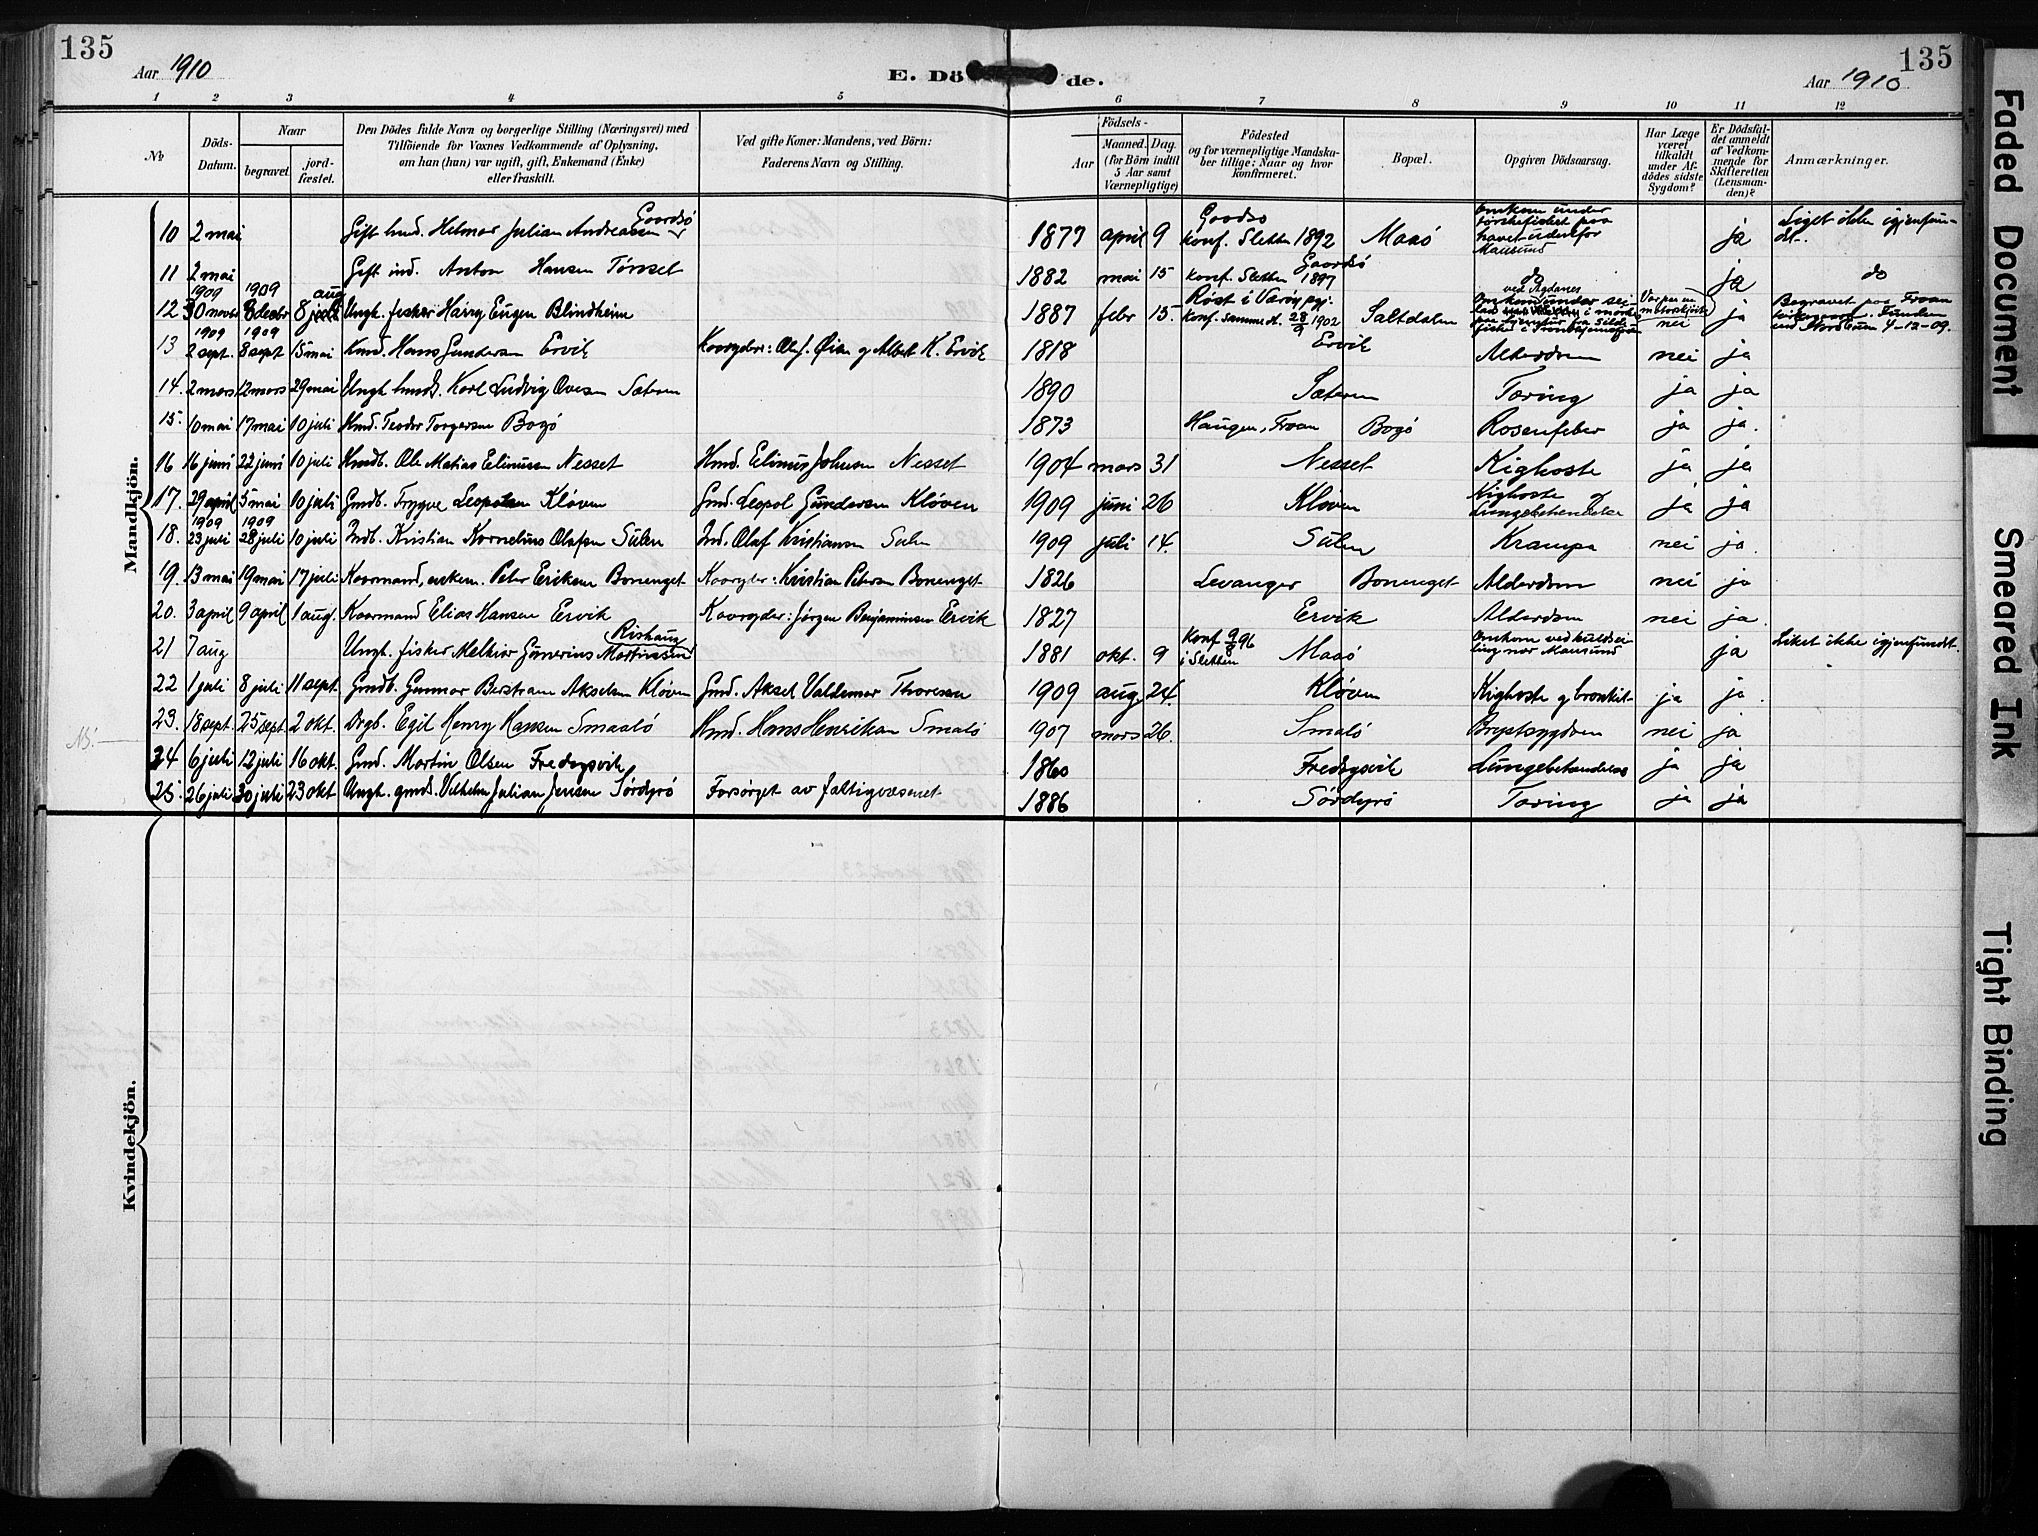 135
Aar 1910
E. Döde.
Aar 1910
135
1 2 3 4 5 6 7 8 9 10 11 12
№
Döds-Datum.
Naar
begravet.
jord-fæstet.
Den Dödes fulde Navn og borgerlige Stilling (Næringsvei) med
Tilföiende for Voxnes Vedkommende af Oplysning,
om han (hun) var ugift, gift, Enkemand (Enke)
eller fraskilt.
Ved gifte Koner: Mandens, ved Börn:
Faderens Navn og Stilling.
Födsels-
Aar
Maaned. Dag.
(for Börn indtil
5 Aar samt
Værnepligtige)
Födested
og for værnepligtige Mandska-
ber tillige: Naar og hvor
konfirmeret.
Bopæl.
Opgiven Dödsaarsag.
Har Læge
været
tilkaldt
under Af-
dödes sidste
Sygdom?
Er Dödsfal-
det anmeldt
af Vedkom-
mende for
Skifteretten
(Lensman-
den)?
Anmærkninger.
Mandkjön.
10 2 mai Gift hmd. Helmar Julian Andreassen Gaardsö 1877 april 9 Gaardsö konf. Sletten 1892 Maasö Omkom under torskefisket paa havet udenfor Mausund ja Liget ikke igjenfundt.
11 2 mai Gift ind. Anton Hansen Tönset 1882 mai 15 konf. Sletten 1897 Gaardsö do ja do
12 30 novbr 1909 8 decbr 1909 8 aug Ungk. fisker Harry Eugen Blindheim 1887 febr 15. Röst i Værøy pgj. konf. samme st. 28/9 1902 Saltdalen ved Agdenes nei ja Begravet paa Froan 4-12-09.
13 2 sept. 1909 8 sept 1909 15 mai Kmd. Hans Gundersen Ervik Kaarydere: Olaf. Øien g Albert K. Ervik 1818 Ervik Alderdom nei ja
14. 2 mars 12 mars 29 mai Ungk. hmds. Karl Ludvig Ovesen Sæteren 1890 Sæteren Tæring ja ja
15. 10 mai 17 mai 10 juli Hmd. Teodor Torgersen Bogö 1873 Haugen, Froan Bogö Rosenfeber ja ja.
16 16 juni 22 juni 10 juli Hmdb. Ole Matias Elinussen Nesset Hmd. Elinus Johnsen Nesset 1904 mars 31 Nesset Kighoste ja ja
17. 29 april 5 mai 10 juli Gmdb. Trygve Leopolsen Kløven Gmd. Leopol Gundersen Kløven 1909 juni 26 Kløven Kighoste g Lungebetændelse ja ja
18. 23 juli 1909 28 juli 1909 10 juli Indb. Kristian Kornelius Olafsen Sulen Ind. Olaf Kristiansen Sulen 1909 juli 14. Sulen Krampe nei ja.
19. 13 mai 19 mai 17 juli Kaarmand, enkem. Peter Eriksen Bonenget Kaaryder: Kristian Petersen Bonenget 1826 Levanger Bonenget Alderdom nei ja
20. 3 april 9 april 1 aug. Kaarmand Elias Hansen Ervik Kaaryder: Jørgen Benjaminsen Ervik 1827 Ervik Alderdom nei ja.
21 7 aug Ungk. fisker Melkior Gunerius Martinssen Rishaug 1881 okt. 9 Konf 96 i Sletten Maasö Omkom ved kuldseiling nær Mausund ja Liket ikke igjenfundt.
22 1 juli 8 juli 11 sept. Gmdb. Gunnar Bertram Akselsen Kløven Gmd. Aksel Valdemar Thoresen 1909 aug. 24. Kløven Kighoste g bronkit ja ja.
NB.
23. 18 sept. 25 sept. 2 okt. Drgb. Egil Henry Hansen Smaalö Hmd. Hans Henriksen Smalö 1907 mars 26. Smalö Brystsygdom nei ja
24 6 juli 12 juli 16 okt. Gmd. Martin Olsen Fredagsvik 1860 Fredagsvik Lungebetændelse ja ja
25. 26 juli 30 juli 23 okt Ungk. gmds. Vilhelm Julian Jensen Sørdyrö Forsørget av fattigvæsenet 1886 Sørdyrö Tæring ja ja
Kvindekjön.
Faded Document
Smeared Ink
Tight Binding